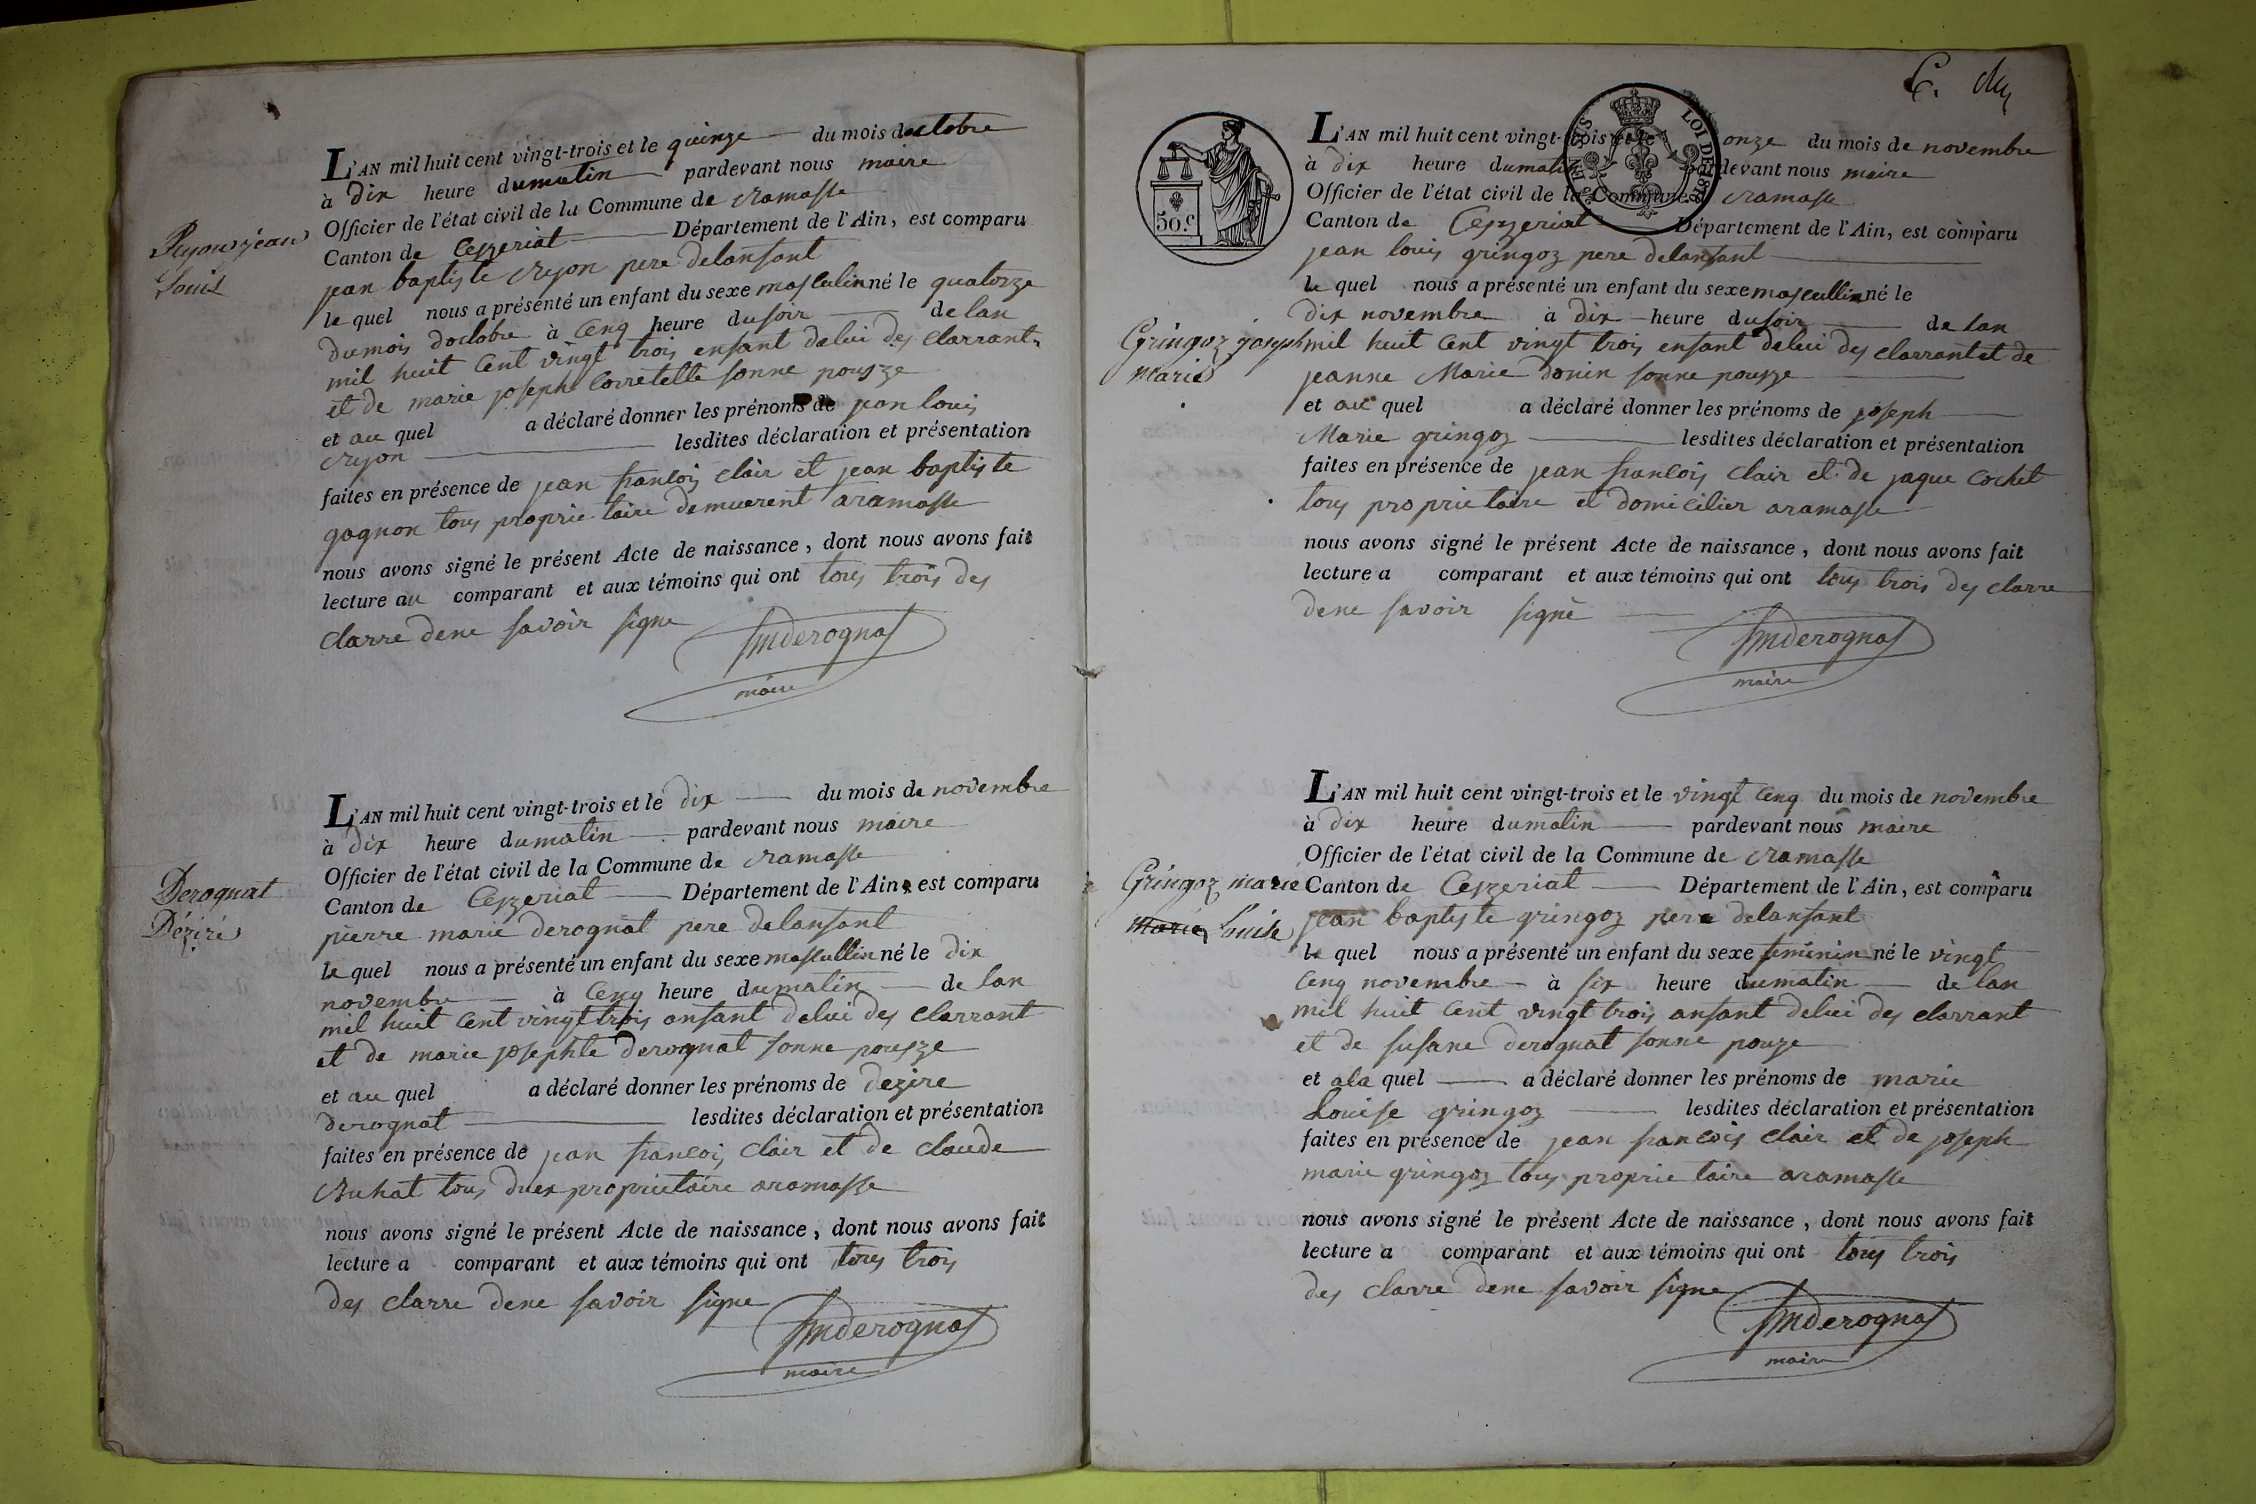 L'AN mil huit cent vingt-trois et le quinze du mois doctobre
à dix heure dumatin pardevant nous maire
Officier de l'état civil de la Commune de ramasse
Canton de Ceyzeriat Département de l'Ain, est comparu
jean baptiste Ryon pere delanfant
le quel nous a présenté un enfant du sexe masculin né le quatorze
dumois doctobre à cenq heure dusoir de lan
mil huit cent vingt trois enfant delui des clarrant
et de marie joseph Corretelle sonne pousze
et au quel a déclaré donner les prénoms de jean louis
Ryon lesdites déclaration et présentation
faites en présence de jean francois clair et jean baptiste
gagnon tous proprietaire demuerent aramasse
nous avons signé le présent Acte de naissance, dont nous avons fait
lecture au comparant et aux témoins qui ont tous trois des
clarre dene savoir signe
maire
jean
Louis
L'AN mil huit cent vingt-trois et le dix du mois de novembre
à dix heure dumatin pardevant nous maire
Officier de l'état civil de la Commune de ramasse
Canton de Ceyzeriat Département de l'Ain, est comparu
pierre marie derognat pere delanfant
le quel nous a présenté un enfant du sexe mascullin né le dix
novembre à cenq heure dumatin de lan
mil huit cent vingt trois anfant delui des clarrant
et de marie josephte derognat sonne pousze
et au quel a déclaré donner les prénoms de dezire
derognat lesdites déclaration et présentation
faites en présence de jean francois clair et de claude
Buhat tous duex proprietaire aramasse
nous avons signé le présent Acte de naissance, dont nous avons fait
lecture a comparant et aux témoins qui ont tous trois
des clarre dene savoir signe
maire
Derognat
Déziré
L'AN mil huit cent vingt-trois et le onze du mois de novembre
à dix heure dumatin pardevant nous maire
Officier de l'état civil de la Commune de ramasse
Canton de Ceyzeriat Département de l'Ain, est comparu
jean louis gringoz pere delanfant
le quel nous a présenté un enfant du sexe mascullin né le
dix novembre à dix heure dusoir de lan
mil huit cent vingt trois enfant delui des clarrant et de
jeanne Marie donin sonne pousze
et au quel a déclaré donner les prénoms de joseph
Marie gringoz lesdites déclaration et présentation
faites en présence de jean francois clair et de jaque cochet
tous proprietaire et domicilier aramasse
nous avons signé le présent Acte de naissance, dont nous avons fait
lecture a comparant et aux témoins qui ont tous trois des clarre
dene savoir signé
maire
Gringoz joseph
marie
50.c
LOI DE 1816
L'AN mil huit cent vingt-trois et le vingt cenq du mois de novembre
à dix heure dumatin pardevant nous maire
Officier de l'état civil de la Commune de ramasse
Canton de Ceyzeriat Département de l'Ain, est comparu
jean baptiste gringoz pere delanfant
le quel nous a présenté un enfant du sexe feminin né le vingt
cenq novembre à six heure dumatin de lan
mil huit cent vingt trois anfant delui des clarrant
et de susane derognat sonne pouze
et ala quel a déclaré donner les prénoms de marie
Louise gringoz lesdites déclaration et présentation
faites en présence de jean francois clair et de joseph
marie gringoz tous proprietaire aramasse
nous avons signé le présent Acte de naissance, dont nous avons fait
lecture a comparant et aux témoins qui ont tous trois
des clarre dene savoir signe
maire
Gringoz marie
marie Louise